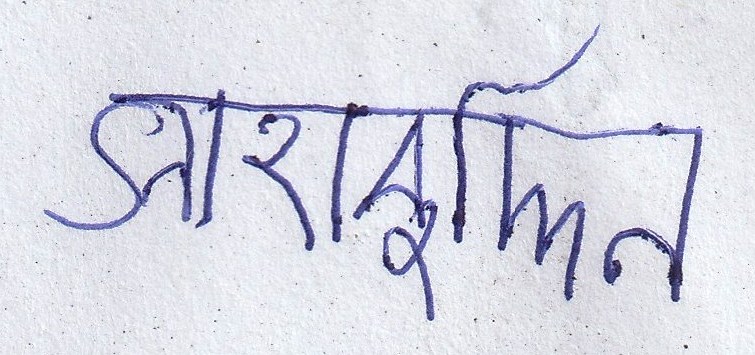 সাহাবুদ্দিন